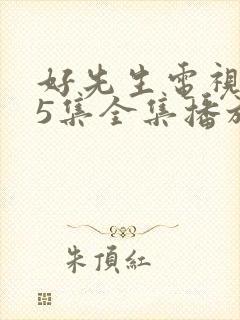 好先生電視
5集全集播放
朱頂紅